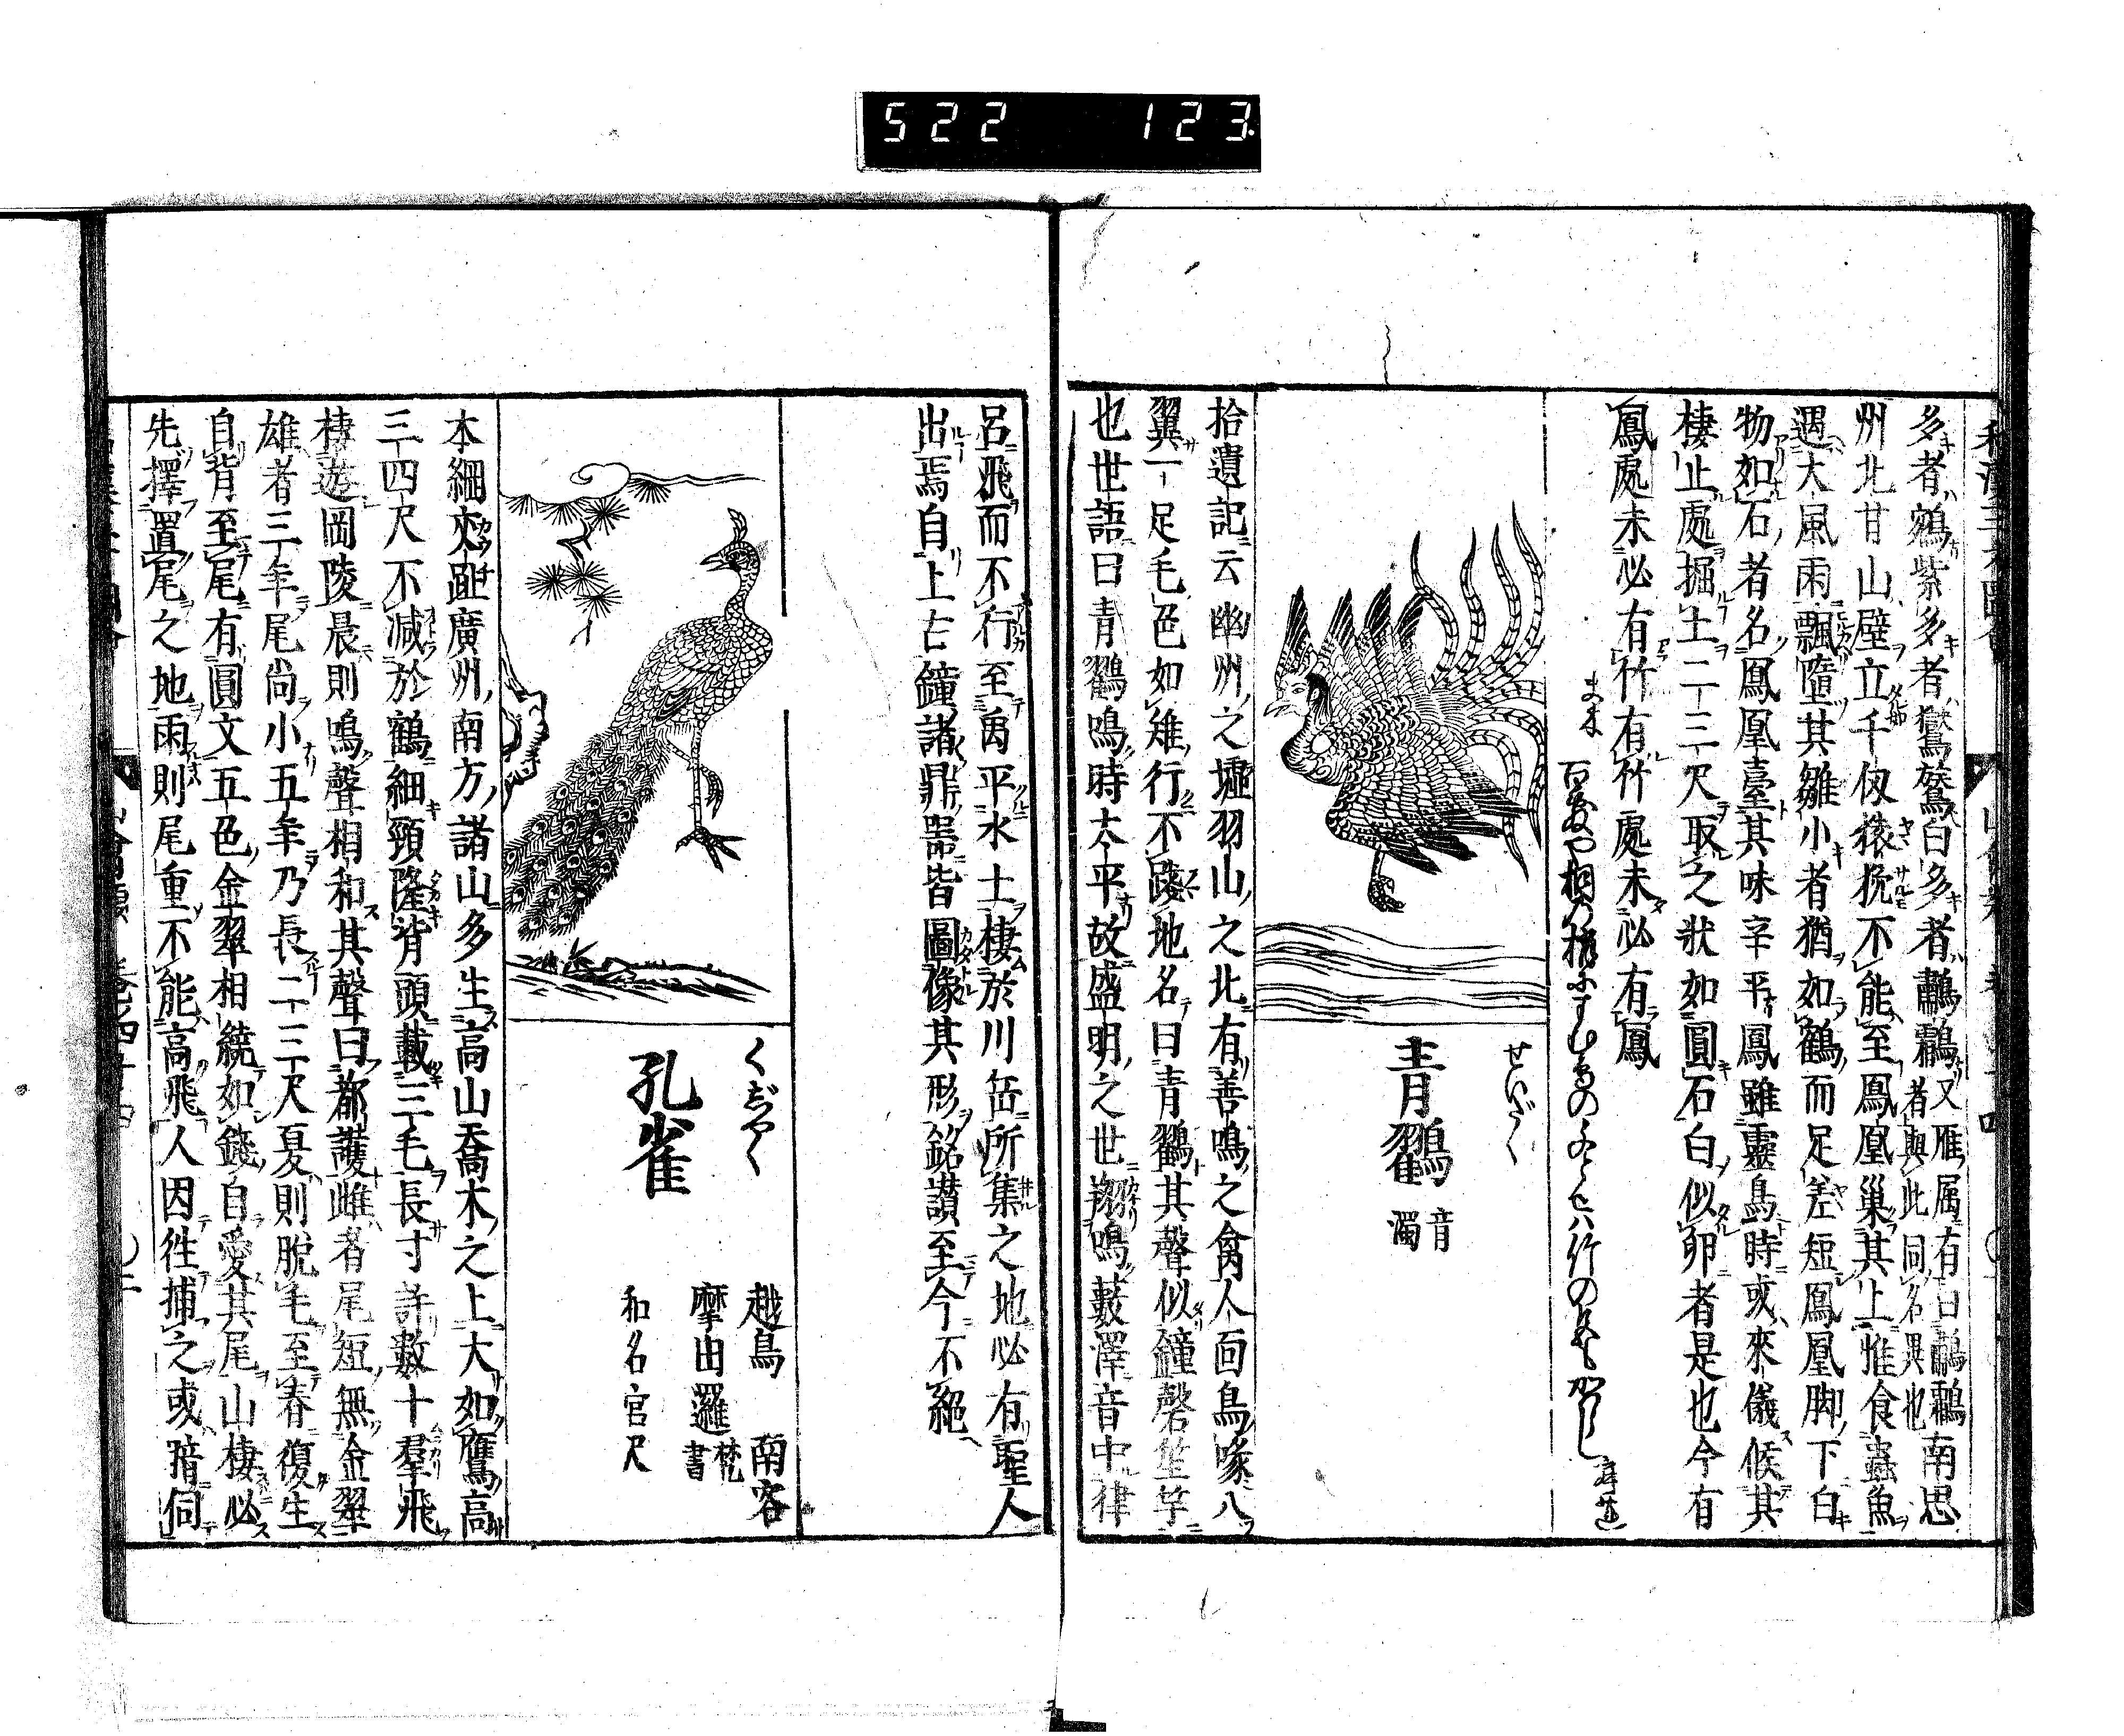 522 123.
多者鵷紫多者鸑鷟白多者鷫鸘又雁属有曰鷫鸘者與此同名異也南思
州北甘山壁立千仭猿挽不能至鳳凰巢其上惟食蟲魚
遇大風雨飄墮其雛小者猶如鶴而足差短鳳凰脚下白
物如石者名鳳凰臺其味辛平鳳雖靈鳥時或來儀候其
棲止處掘土二三尺取之状如圓石白似卵者是也今有
鳳處未必有竹有竹處未必有鳳
せいだく
青鸐
音濁
拾遺記云幽州之墟羽山之北有善鳴之禽人面鳥喙八
翼一足毛色如雉行不踐地名曰青鸐其聲似鐘磬笙竽
也世語曰青鸐鳴時太平故盛明之世翔鳴藪澤音中律
呂飛而不行至禹平水土棲於川岳所集之地必有聖人
出焉自上古鑄諸鼎噐皆圖像其形銘讃至今不絕
くじやく
孔雀
越鳥 南客
摩由邏 梵書
和名宮尺
本綱交趾廣州南方諸山多生高山喬木之上大如鷹高
三四尺不減於鶴細頸隆背頭載三毛長寸許數十羣飛
棲遊岡陵晨則鳴聲相和其聲曰都護雌者尾短無金翠
雄者三年尾尚小五年乃長二三尺夏則脫毛至春復生
自背至尾有圓文五色金翠相繞如錢自愛其尾山棲必
先擇置尾之地雨則尾重不能高飛人因徃捕之或暗伺